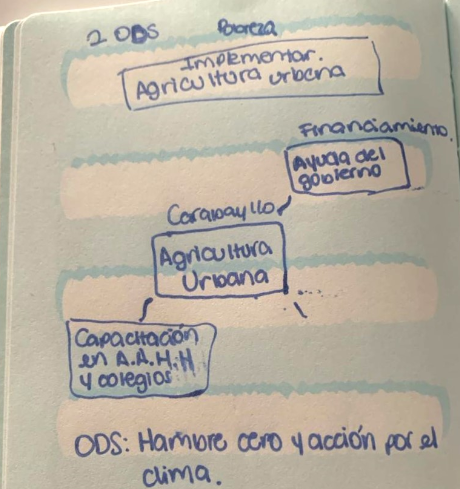 2 ODS Pobreza
Implementar.
Agricultura urbana
Financiamiento.
Ayuda del
gobierno
Carabayllo
Agricultura
Urbana
Capacitación
en A.A.H.H
y colegios
ODS: Hambre cero y acción por el
clima.